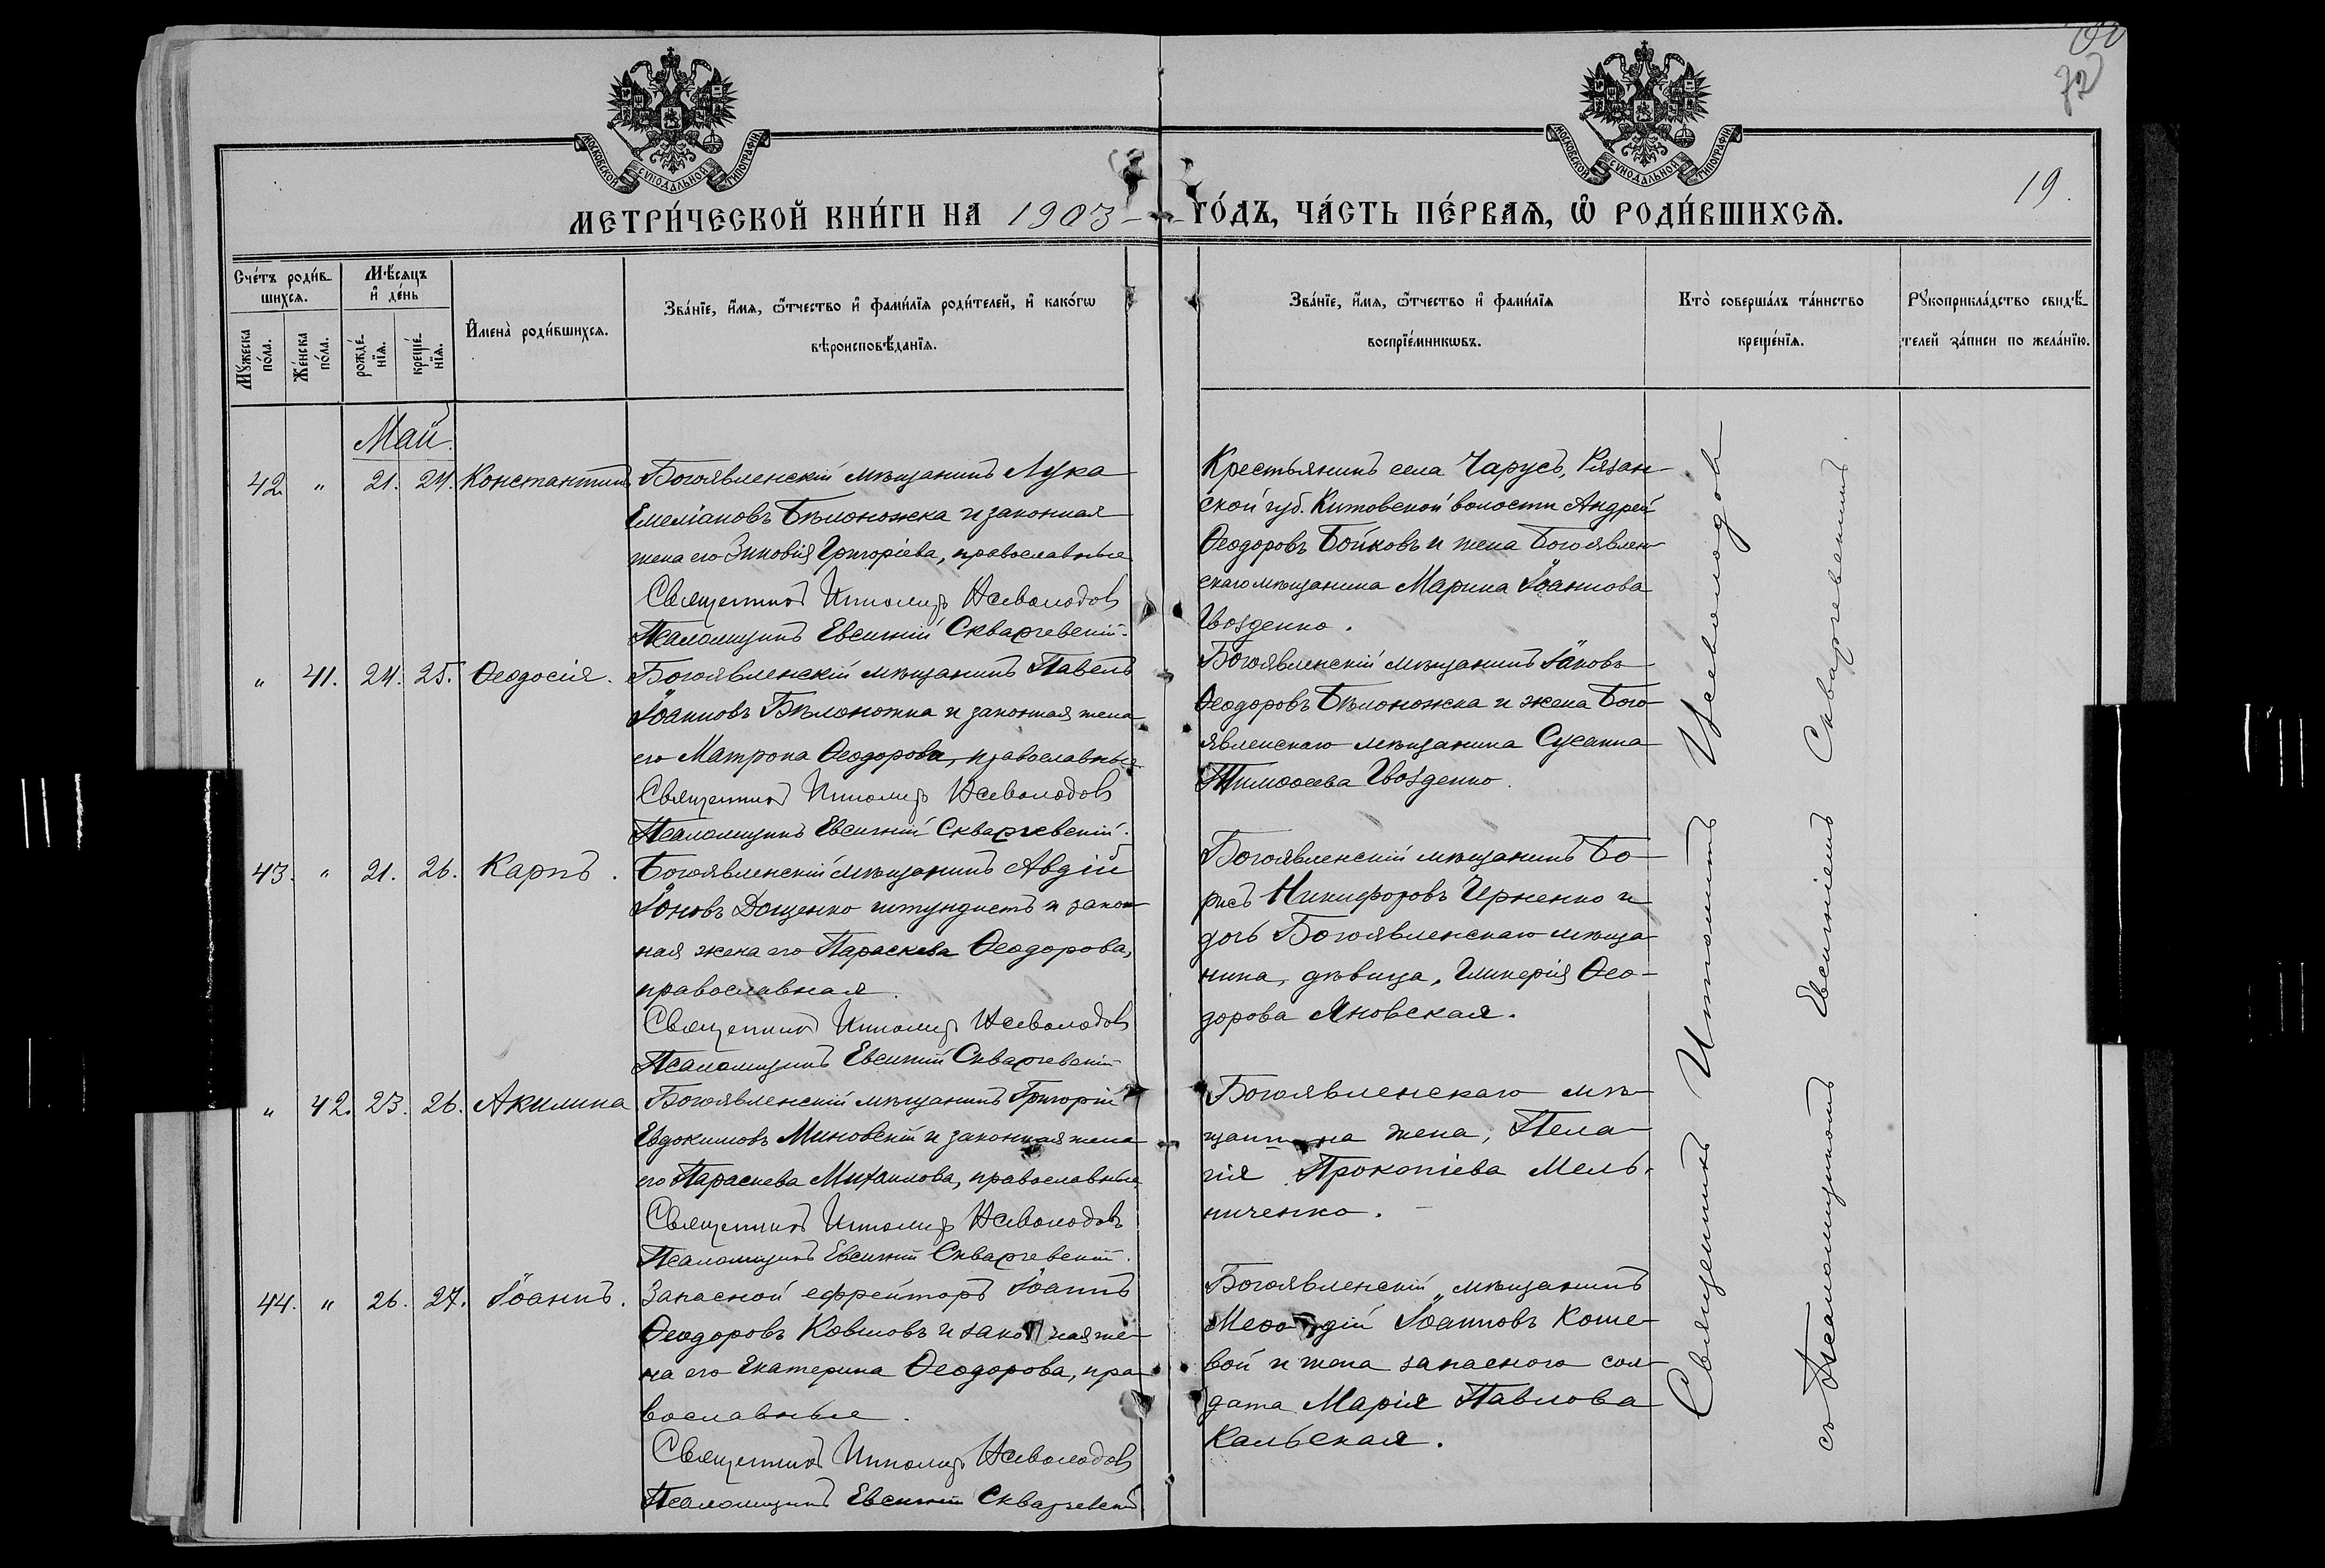 72
19.
МОСКОВСКОЙ СѴНОДАЛЬНОЙ ТИПОГРАФІИ
МОСКОВСКОЙ СѴНОДАЛЬНОЙ ТИПОГРАФІИ
МЕТРИ́ЧЕСКОЙ КНИ́ГИ НА 1903 ГО́ДЪ, ЧА́СТЬ ПЕ́РВАѦ, Ѽ РОДИ́ВШИХСѦ.
Сче́тъ роди́в-
шихсѧ.
Мѣ́сяцъ
и҆ де́нь
Мꙋ́жеска
по́ла.
Же́нска
по́ла.
рожде́-
нїѧ.
креще́-
нїѧ.
И҆мена̀ роди́вшихсѧ.
Зва́нїе, и҆́мѧ, ѻ҆́тчество и҆ фами́лїѧ роди́телей, и҆ како́гѡ
вѣроисповѣ́данїѧ.
Зва́нїе, и҆́мѧ, ѻ҆́тчество и҆ фами́лїѧ
воспрїе́мникѡвъ.
Кто̀ соверша́лъ та́инство
креще́нїѧ.
Рꙋкоприкла́дство свидѣ́-
телей за́писи по жела́нїю.
Май.
42 " 21. 24. Константинъ
Богоявленскій мѣщанинъ Лука
Емеліановъ Бѣлоножка и законная
жена его Зиновія Григоріева, православные
Священникъ Ипполитъ Всеволодовъ
Псаломщикъ Евсигній Скваржевскій.
Крестьянинъ села Чарусъ, Рязан-
ской губ. Китовской волости Андрей
Ѳеодоровъ Бойковъ и жена Богоявлен-
скаго мѣщанина Марина Іоаннова
Гвозденко.
" 41. 24. 25. Ѳеодосія.
Богоявленскій мѣщанинъ Павелъ
Іоанновъ Бѣлоножка и законная жена
его Матрона Ѳеодорова, православные
Священникъ Ипполитъ Всеволодовъ
Псаломщикъ Евсигній Скваржевскій.
Богоявленскій мѣщанинъ Іаковъ
Ѳеодоровъ Бѣлоножка и жена Бого-
явленскаго мѣщанина Сусанна
Тимоѳеева Гвозденко.
43. " 21. 26. Карпъ.
Богоявленскій мѣщанинъ Авдій
Іоновъ Дощенко штундистъ и закон-
ная жена его Параскева Ѳеодорова,
православная.
Священникъ Ипполитъ Всеволодовъ
Псаломщикъ Евсигній Скваржевскій
Богоявленскій мѣщанинъ Бо-
рисъ Никифоровъ Черненко и
дочь Богоявленскаго мѣща-
нина, дѣвица, Гликерія Ѳео-
дорова Яновская.
" 42. 23. 26. Акилина
Богоявленскій мѣщанинъ Григорій
Евдокимовъ Миновскій и законная жена
его Параскева Михаилова, православные
Священникъ Ипполитъ Всеволодовъ
Псаломщикъ Евсигній Скваржевскій.
Богоявленскаго мѣ-
щанина жена, Пела-
гія Прокопіева Мель-
ниченко.
44. " 26. 27. Іоаннъ.
Запасной ефрейторъ Іоаннъ
Ѳеодоровъ Ковшовъ и законная же-
на его Екатерина Ѳеодорова, пра-
вославные.
Священникъ Ипполитъ Всеволодовъ
Псаломщикъ Евсигній Скваржевскій
Богоявленскій мѣщанинъ
Меѳодій Іоанновъ Коше-
вой и жена запасного сол-
дата Марія Павлова
Кальская.
Священникъ Ипполитъ Всеволодовъ
съ Псаломщикомъ Евсигніемъ Скваржевскимъ.